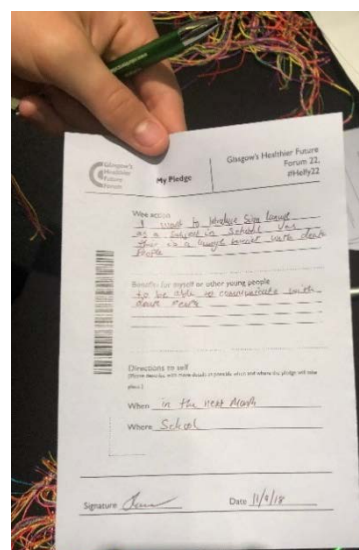 Glasgow's
Healthier
Future
Forum
My Pledge
Glasgow's Healthier Future
Forum 22,
#Helfy22
Wee action
I want to introduce Sign
as a Subject in School
there is a with deaf
People
Benefits for myself or other young people
to be able to communicate with
deaf
Directions to self
place.)
When in the next Month
Where School
Signature
Date 11/9/18